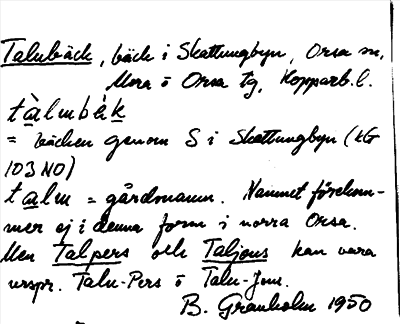 Talmbäck, bäck i Skattungbyn, Orsa sn,
Mora o Orsa tg, Kopparb. l.
tàlmbɛ́k
= bäcken genom S i Skattungbyn (kG
103 NO)
talm = gårdsnamn. Namnet förekom-
mer ej i denna form i norra Orsa.
Men Talpers och Taljons kan vara
urspr. Talu-Pers o Talu-Jons.
B. Granholm 1950